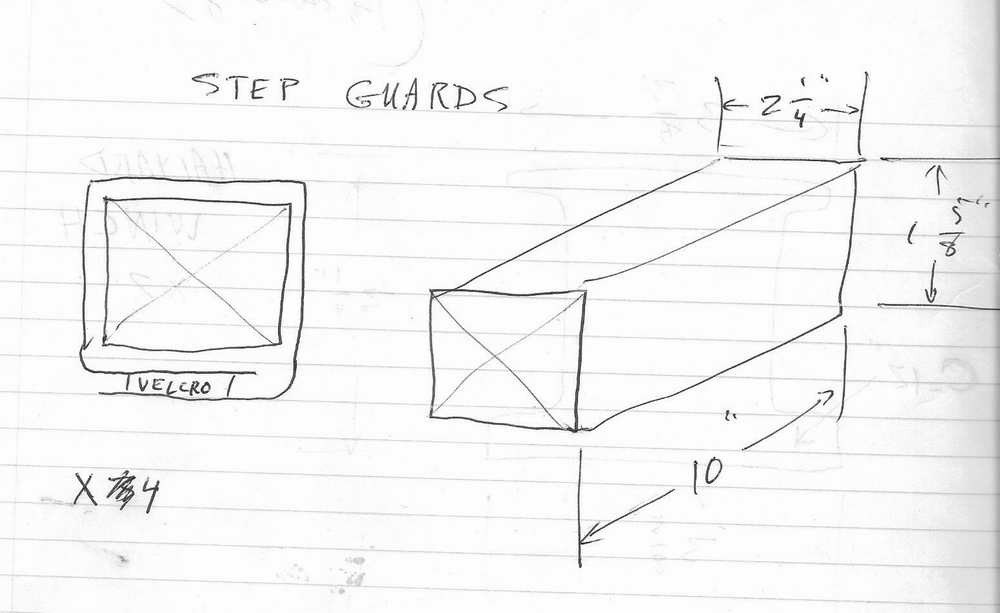 STEP GUARDS
2 1/4"
1 5/8"
VELCRO
10"
X 4